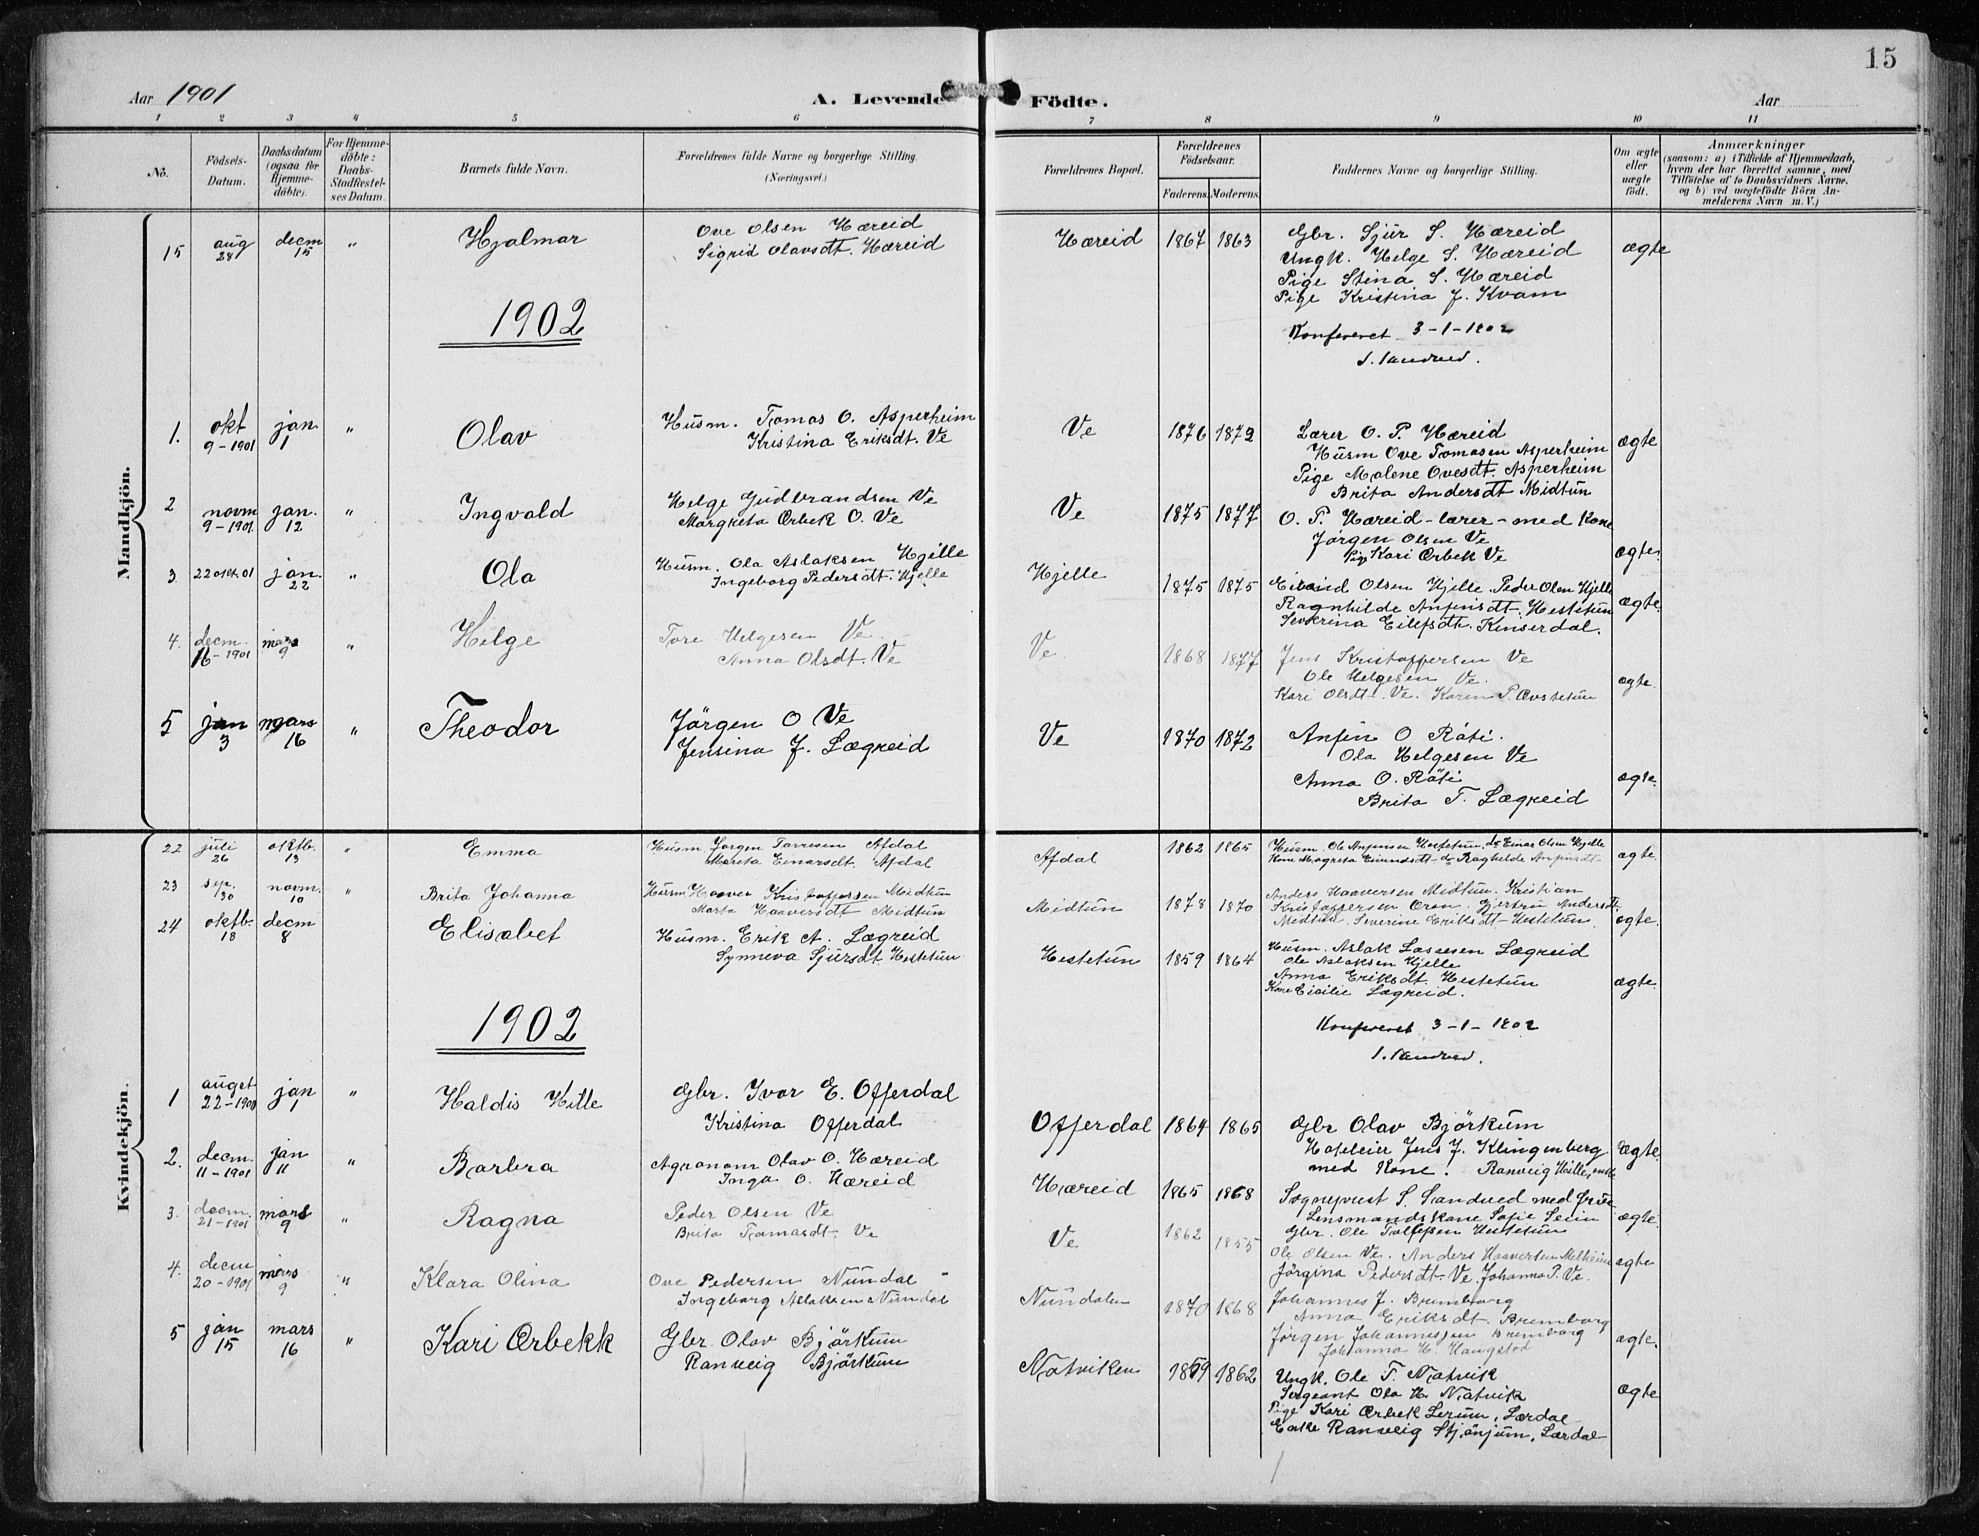 15
Aar 1901
A. Levende Födte.
Aar
1 2 3 4 5 6 7 8 9 10 11
No.
Födsels-Datum.
Daabsdatum (ogsaa for Hjemme-döbte).
For Hjemme-döbte: Daabs-Stadfæstel-ses Datum.
Barnets fulde Navn.
Forældrenes fulde Navne og borgerlige Stilling. (Næringsvei.)
Forældrenes Bopæl.
Forældrenes Födselsaar.
Faderens. Moderens.
Faddernes Navne og borgerlige Stilling.
Om ægte eller uægte födt.
Anmærkninger
(saasom: a) i Tilfælde af Hjemmedaab,
hvem der har forrettet samme, med
Tilföielse af to Daabsvidners Navne.
og b) ved uægtefödte Börn An-
melderens Navn m. V.)
Mandkjön.
15 aug 28 decm 15 " Hjalmar
Ove Olsen Hæreid
Sigrid Olavsdt. Hæreid
Hæreid 1867 1863
Gbr. Sjur S. Hæreid
Ungk. Helge S. Hæreid
Pige Stina S. Hæreid
Pige Kristina J. Kvam
ægte
1902
Konfereret 3-1-1902
S. Sandved.
1. okt 9-1901 jan. 1 " Olav
Husm. Tomas O. Asperheim
Kristina Eriksdt. Ve
Ve 1876 1872
Lærer O. P. Hæreid
Husm Ove Tomasen Asperheim
Pige Malene Ovesdt. Asperheim
Brita Andersdt Midtun
ægte
2 novm 9-1901. jan. 12 " Ingvald
Helge Gudbrandsen Ve
Margreta Ørbek O. Ve
Ve 1875 1877
O. P. Hæreid - lærer - med Kone
Jørgen Olsen Ve
Pig. Kari Ørbek Ve
ægte.
3. 22 okt. 01 jan. 22 " Ola
Husm. Ola Aslaksen Hjelle
Ingeborg Pedersdt. Hjelle
Hjelle 1875 1875
Eivind Olsen Hjelle. Peder Olsen Hjelle
Ragnhilde Anfinsdt. Hestetun
Severina Eilefsdt. Kinserdal.
ægte.
4. decm. 16-1901 mars 9 " Helge
Tore Helgesen Ve.
Anna Olsdt. Ve
Ve. 1868 1877
Jens Kristoffersen Ve
Ole Helgesen Ve.
Kari Olsdt. Ve. Karen P. Øvstetun
ægte.
5 jan 3 mars 16 " Theodor
Jörgen O Ve
Jensina J. Lægreid
Ve 1870 1872
Anfin O Röti.
Ola Helgesen Ve
Anna O. Röti
Brita T. Lægreid
ægte.
Kvindekjön.
22 juli 26 oktb. 13 " Emma
Husm. Jørgen Torresen Afdal
Marita Einarsdt. Afdal
Afdal 1862 1865
Husm. Ole Anfinsen Hestetun, do Einar Olsen Hjelle
Kone Magreta Eivindsdt - do Raghilde Anfinsdt.
ægte.
23 sep. 30 novm. 10 " Brita Johanna
Husm Haaver Kristoffersen Midtun
Marta Haaversdt Midtun
Midtun 1878 1870
Anders Haaversen Midtun. Kristian
Kristoffersen Øren. Gjertru Andersdt.
Midtun. Severine Eriksdt Hestetun.
ægte.
24 oktb. 18 decm 8 Elisabet
Husm. Erik A. Lægreid
Synneva Sjursdt Hestetun
Hestetun 1859 1864
Husm. Aslak Lassesen Lægreid
Ole Aslaksen Hjelle
Anna Eriksdt. Hestetun
Kone Cicilie Lægreid.
ægte.
1902
Konfereret 3-1-1902
S. Sandved.
1 auget 22-1901 jan 1 " Haldis Hille
Gbr. Ivar E. Offerdal
Kristina Offerdal
Offerdal 1864 1865
Gbr Olav Björkum
Hoteleier Jens J. Klingenberg
med Kone. Ranveig Hille, enke
Ægte.
2. decm. 11-1901 jan 11 " Barbra
Agronom Olav O. Hæreid
Inga O. Hæreid
Hæreid 1865 1868
Sogneprest S. Sandved med frue
Lensmandskone Sofie Seim
Gbr. Ole Tollefsen Hestetun
ægte.
3. decm. 21-1901 mars 9 " Ragna
Peder Olsen Ve
Brita Tomasdt. Ve
Ve 1862 1855
Ole Olsen Ve. Anders Haaversen Melheim
Jörgina Pedersdt. Ve. Johanna P. Ve.
ægte
4. decm 20-1901 mars 9 " Klara Olina
Ove Pedersen Nundal
Ingeborg Aslaksen Nundal
Nundalen 1870 1868
Johannes J. Bremborg
Anna Eriksdt. Bremborg
Jørgen Johannessen Bremborg
Johanna H. Haugstad
ægte.
5 jan 15 mars 16 " Kari Ørbekk
Gbr. Olav Björkum
Ranveig Björkum
Natviken 1859 1862
Ungk. Ole T. Natvik
Sergeant Ola H. Natvik
Pige Kari Ørbek Lerum, Lærdal
Enke Ranveig Stjönjum, Lærdal
ægte